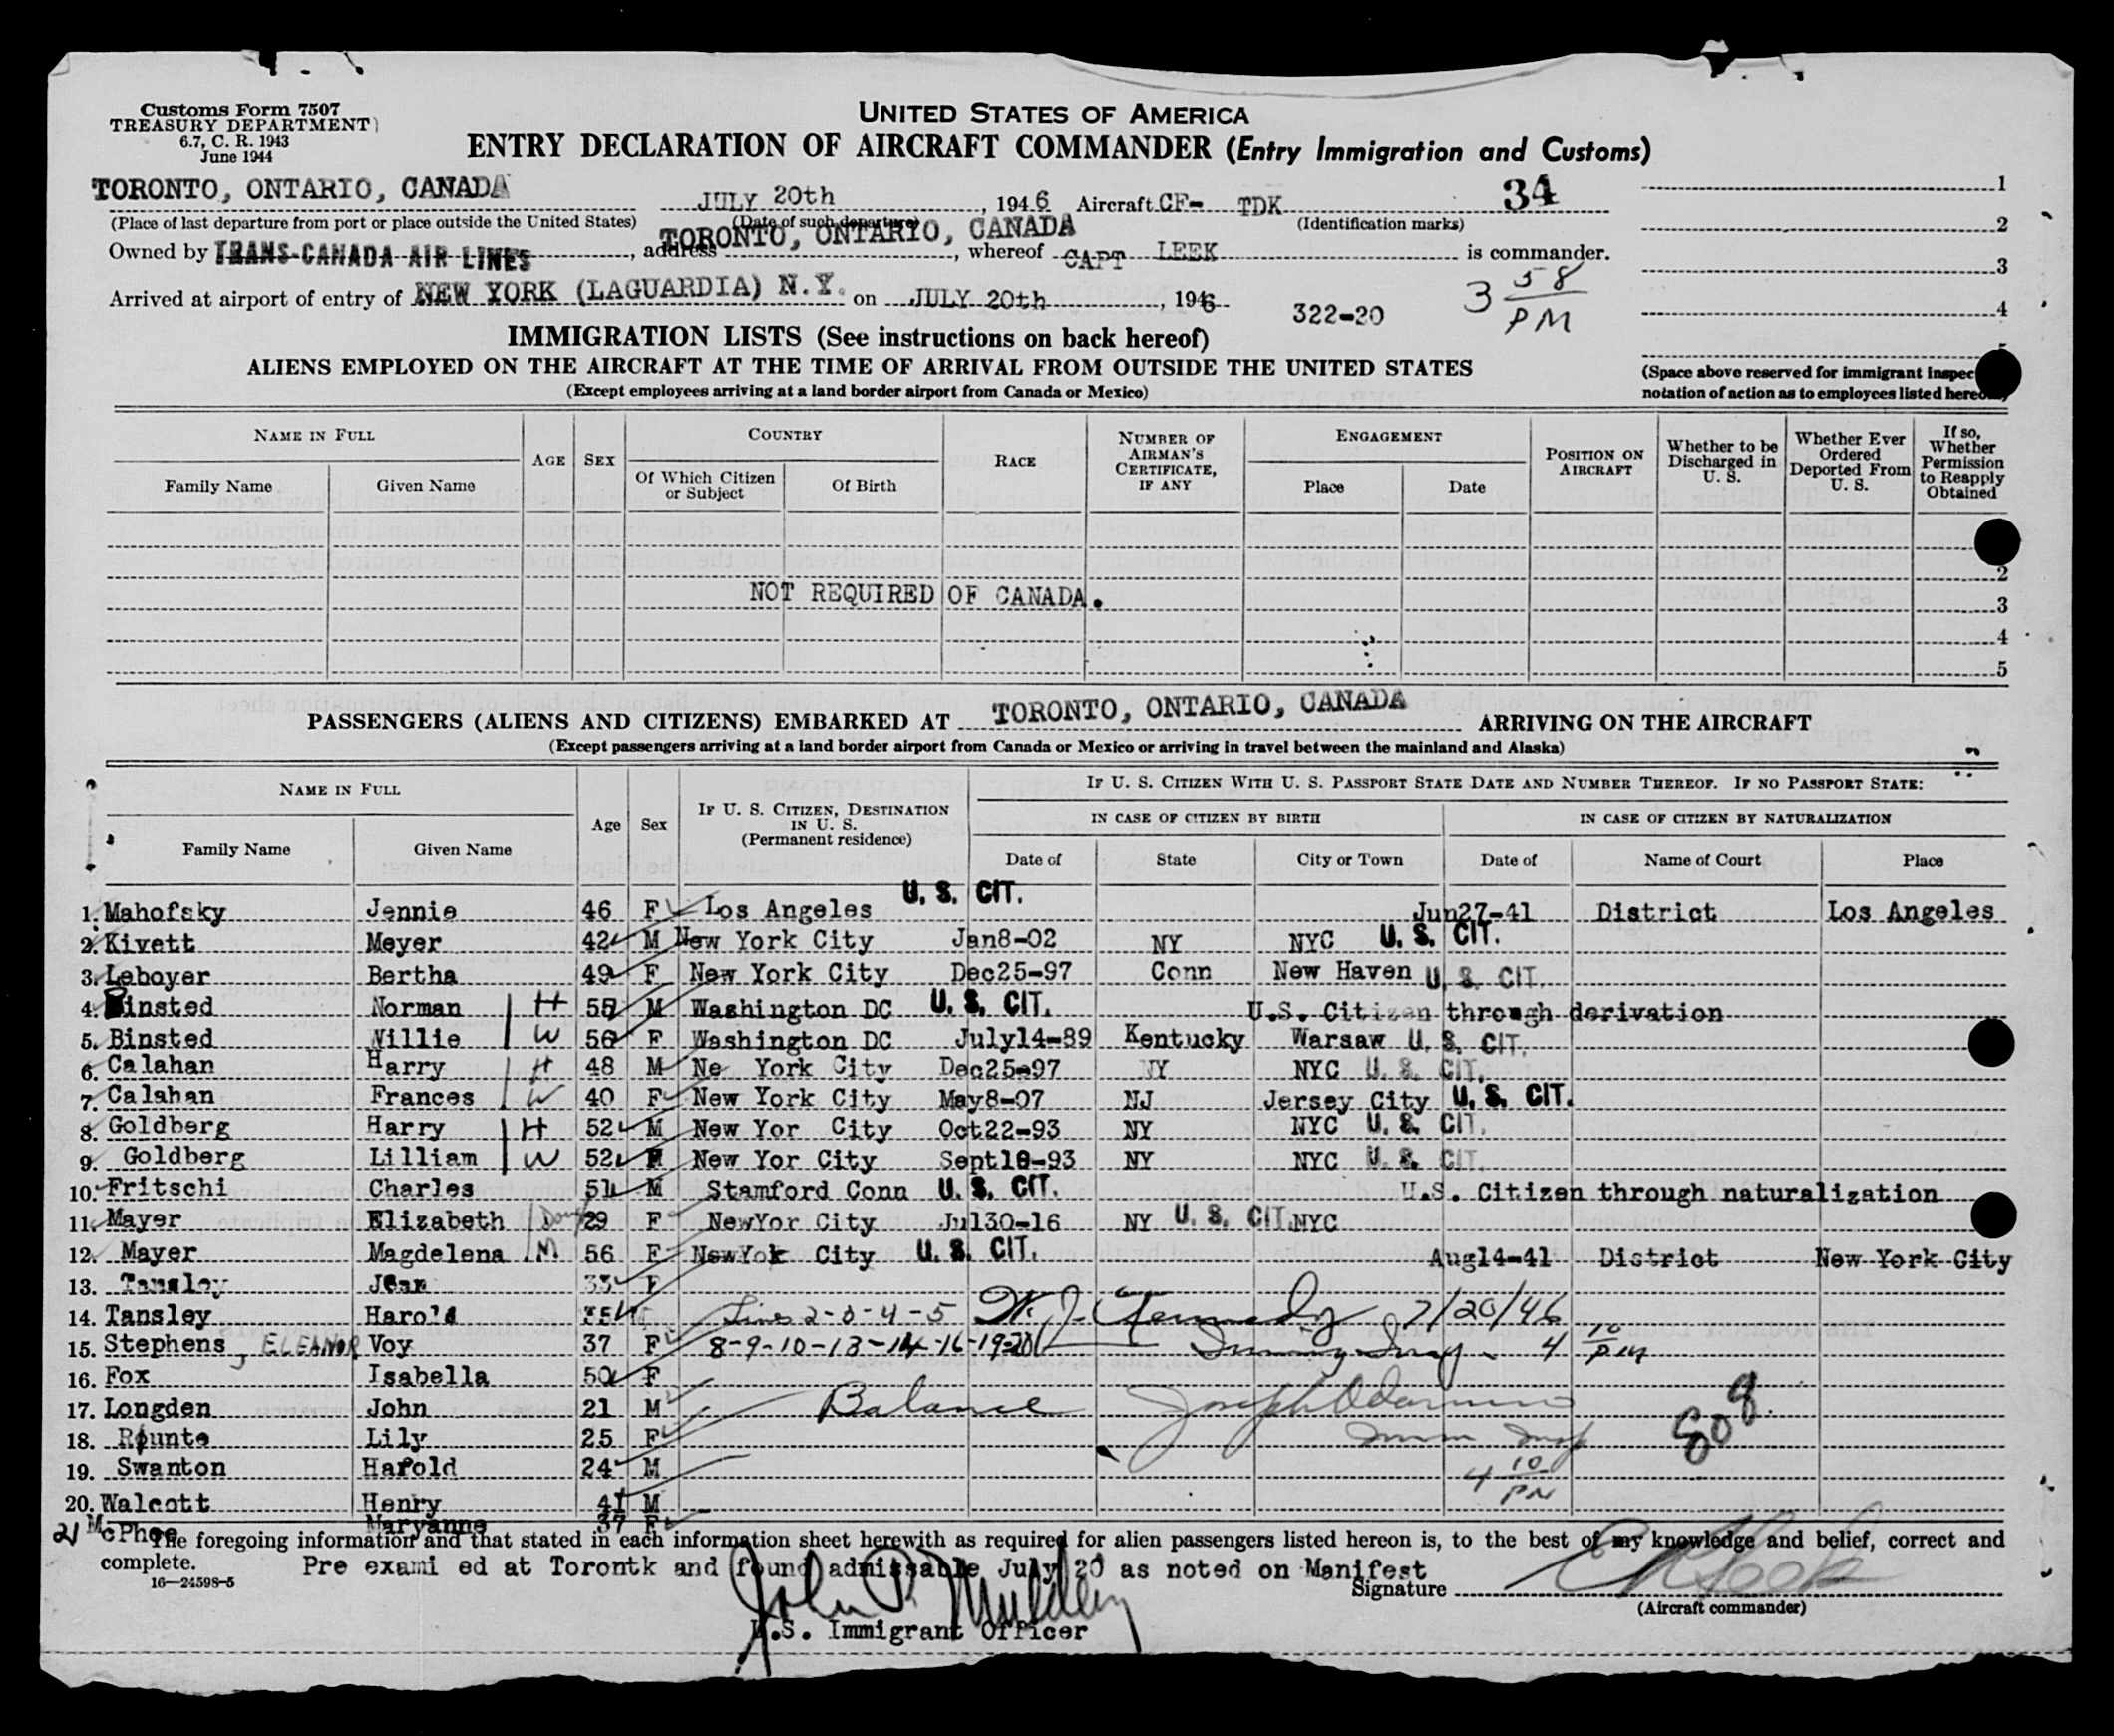 Customs Form 7507
TREASURY DEPARTMENT
6.7, C. R. 1943
June 1944
UNITED STATES OF AMERICA
ENTRY DECLARATION OF AIRCRAFT COMMANDER (Entry Immigration and Customs)
TORONTO, ONTARIO, CANADA JULY 20th, 1946 Aircraft CF- TDK 34
(Place of last departure from port or place outside the United States) (Date of such departure) (Identification marks)
Owned by TRANS-CANADA AIR LINES, address TORONTO, ONTARIO, CANADA, whereof CAPT LEEK is commander.
Arrived at airport of entry of NEW YORK (LAGUARDIA) N.Y. on JULY 20th, 1946 322-20 3 58 PM
1
2
3
4
IMMIGRATION LISTS (See instructions on back hereof)
ALIENS EMPLOYED ON THE AIRCRAFT AT THE TIME OF ARRIVAL FROM OUTSIDE THE UNITED STATES
(Except employees arriving at a land border airport from Canada or Mexico)
(Space above reserved for immigrant inspec
notation of action as to employees listed hereo
NAME IN FULL AGE SEX COUNTRY RACE NUMBER OF AIRMAN'S CERTIFICATE, IF ANY ENGAGEMENT POSITION ON AIRCRAFT Whether to be Discharged in U. S. Whether Ever Ordered Deported From U. S. If so, Whether Permission to Reapply Obtained
Family Name Given Name Of Which Citizen or Subject Of Birth Place Date
2
NOT REQUIRED OF CANADA. 3
4
5
PASSENGERS (ALIENS AND CITIZENS) EMBARKED AT TORONTO, ONTARIO, CANADA ARRIVING ON THE AIRCRAFT
(Except passengers arriving at a land border airport from Canada or Mexico or arriving in travel between the mainland and Alaska)
NAME IN FULL Age Sex IF U. S. CITIZEN, DESTINATION IN U. S. (Permanent residence) IF U. S. CITIZEN WITH U. S. PASSPORT STATE DATE AND NUMBER THEREOF. IF NO PASSPORT STATE:
IN CASE OF CITIZEN BY BIRTH IN CASE OF CITIZEN BY NATURALIZATION
Family Name Given Name Date of State City or Town Date of Name of Court Place
1. Mahofsky Jennie 46 F Los Angeles U. S. CIT. Jun27-41 District Los Angeles
2. Kivett Meyer 42 M New York City Jan8-02 NY NYC U. S. CIT.
3. Leboyer Bertha 49 F New York City Dec25-97 Conn New Haven U. S. CIT.
4. Binsted Norman H 55 M Washington DC U. S. CIT. U.S. Citizen through derivation
5. Binsted Willie W 56 F Washington DC July14-89 Kentucky Warsaw U. S. CIT.
6. Calahan Harry H 48 M Ne York City Dec25-97 NY NYC U. S. CIT.
7. Calahan Frances W 40 F New York City May8-07 NJ Jersey City U. S. CIT.
8. Goldberg Harry H 52 M New Yor City Oct22-93 NY NYC U. S. CIT.
9. Goldberg Lilliam W 52 New Yor City Sept18-93 NY NYC U. S. CIT.
10. Fritschi Charles 51 M Stamford Conn U. S. CIT. U.S. Citizen through naturalization
11. Mayer Elizabeth 29 F NewYor City Jul30-16 NY U. S. CIT. NYC
12. Mayer Magdelena M 56 F NewYok City U. S. CIT. Aug14-41 District New York City
13. Tansley Jean 33 F
14. Tansley Harold 35 Lines 2-3-4-5 W. J. Kennedy 7/20/46
15. Stephens, ELEANOR Voy 37 F 8-9-10-13-14-16-19-20 4 10 PM
16. Fox Isabella 50 F
17. Longden John 21 M Balance
18. Rounte Lily 25 F
19. Swanton Harold 24 M 4 10 PM
20. Walcott Henry 41 M
21 McPhee Maryanne 37 F
The foregoing information and that stated in each information sheet herewith as required for alien passengers listed hereon is, to the best of my knowledge and belief, correct and
complete. Pre exami ed at Torontk and found admissable July 20 as noted on Manifest
16—24598-5 Signature
(Aircraft commander)
U.S. Immigrant Officer